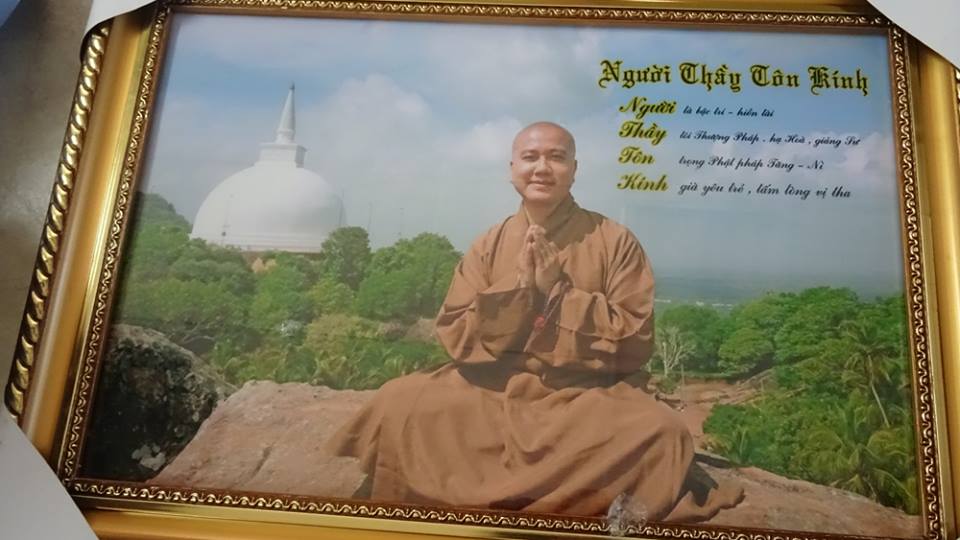 Người Thầy Tôn Kính
Người là bậc trí - hiền tài
Thầy tôi Thượng Pháp . hạ Hoà , giảng Sư
Tôn trọng Phật pháp Tăng - Ni
Kính già yêu trẻ , tấm lòng vị tha